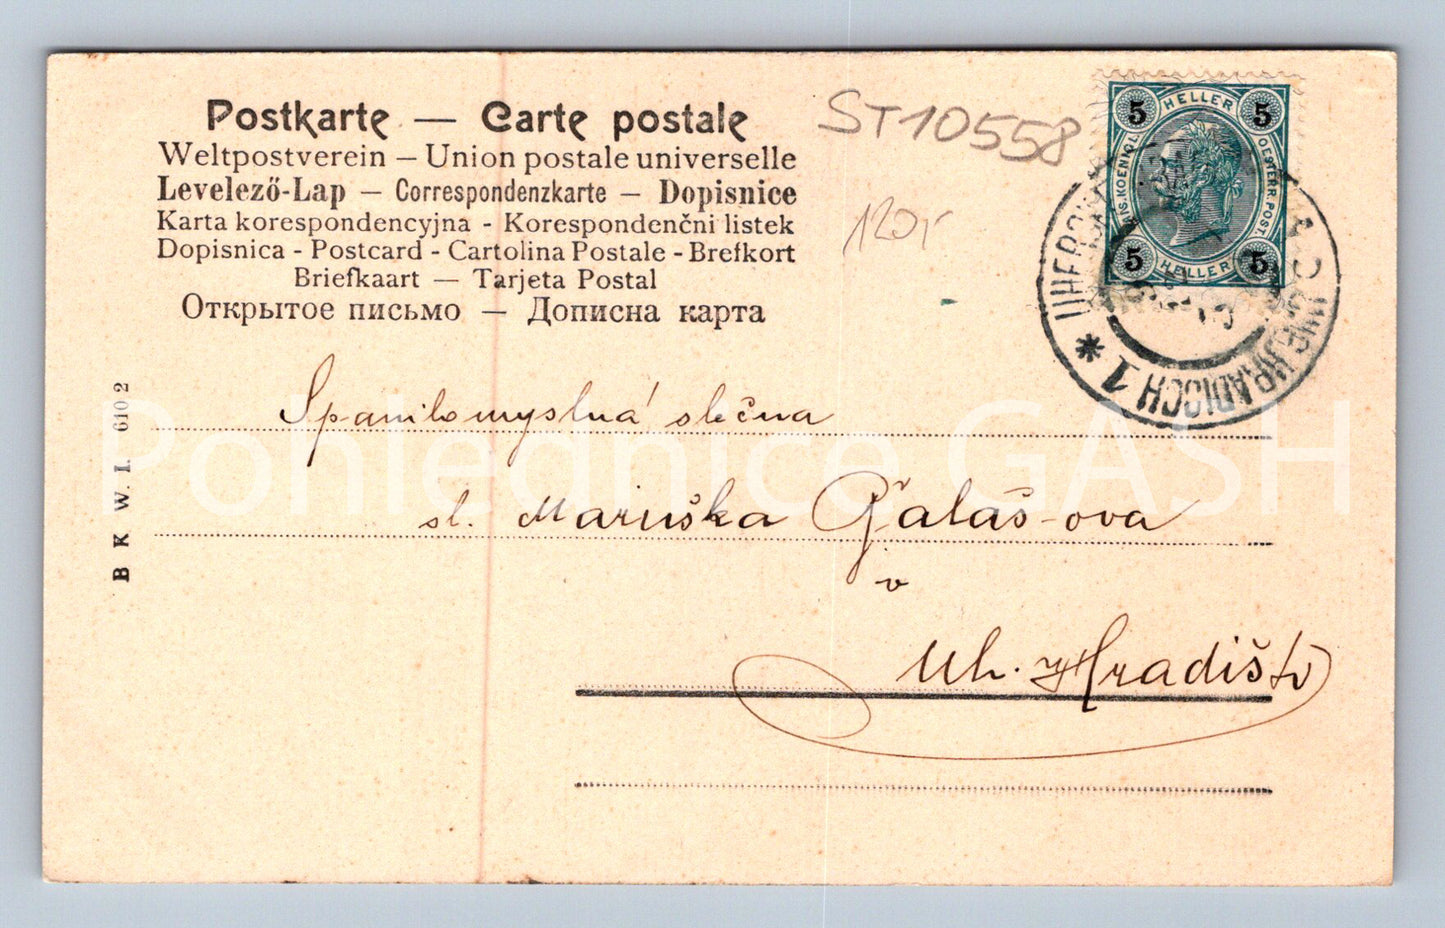 Postkarte — Carte postale
Weltpostverein – Union postale universelle
Levelező-Lap — Correspondenzkarte — Dopisnice
Karta korespondencyjna - Korespondenčni listek
Dopisnica - Postcard - Cartolina Postale - Brefkort
Briefkaart — Tarjeta Postal
Открытое письмо — Дописна карта
ST10558
120,-
5 HELLER 5
OESTERR. POST.
5 HELLER 5
UHERSKÉ
UNG. HRADISCH 1
B K W. I. 610 2
Spanilomyslná slečna
sl. Maruška Galaš-ova
v
Uh. Hradišti
Pohlednice GASH